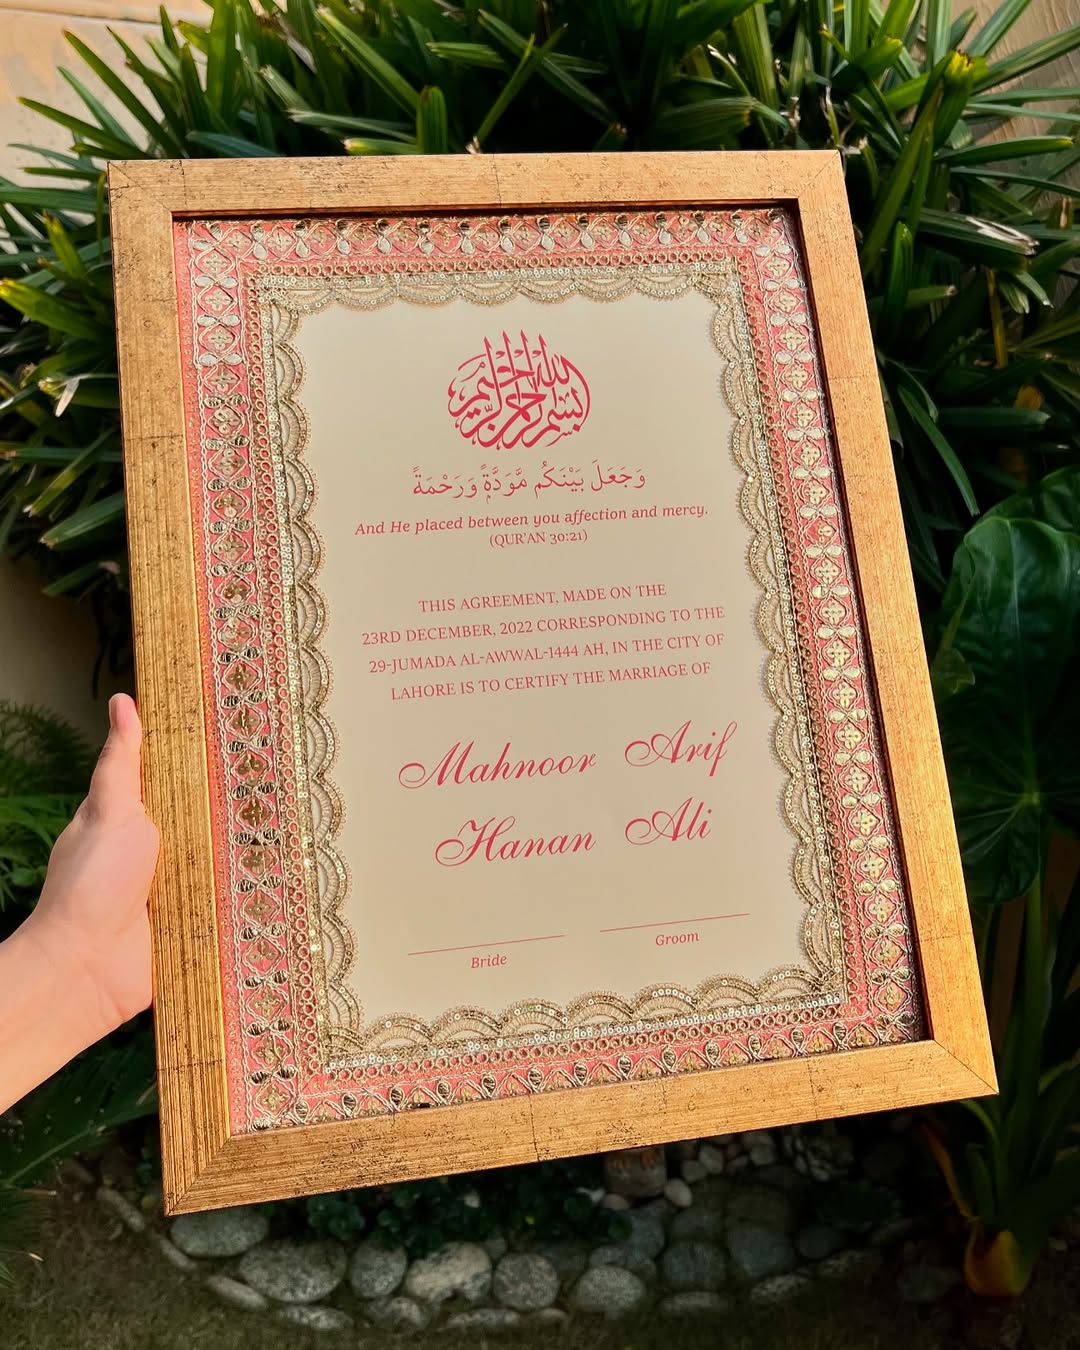 بسم الله الرحمن الرحيم
وَجَعَلَ بَيْنَكُم مَّوَدَّةً وَرَحْمَةً
And He placed between you affection and mercy.
(QUR'AN 30:21)
THIS AGREEMENT, MADE ON THE
23RD DECEMBER, 2022 CORRESPONDING TO THE
29-JUMADA AL-AWWAL-1444 AH, IN THE CITY OF
LAHORE IS TO CERTIFY THE MARRIAGE OF
Mahnoor Arif
Hanan Ali
Bride
Groom